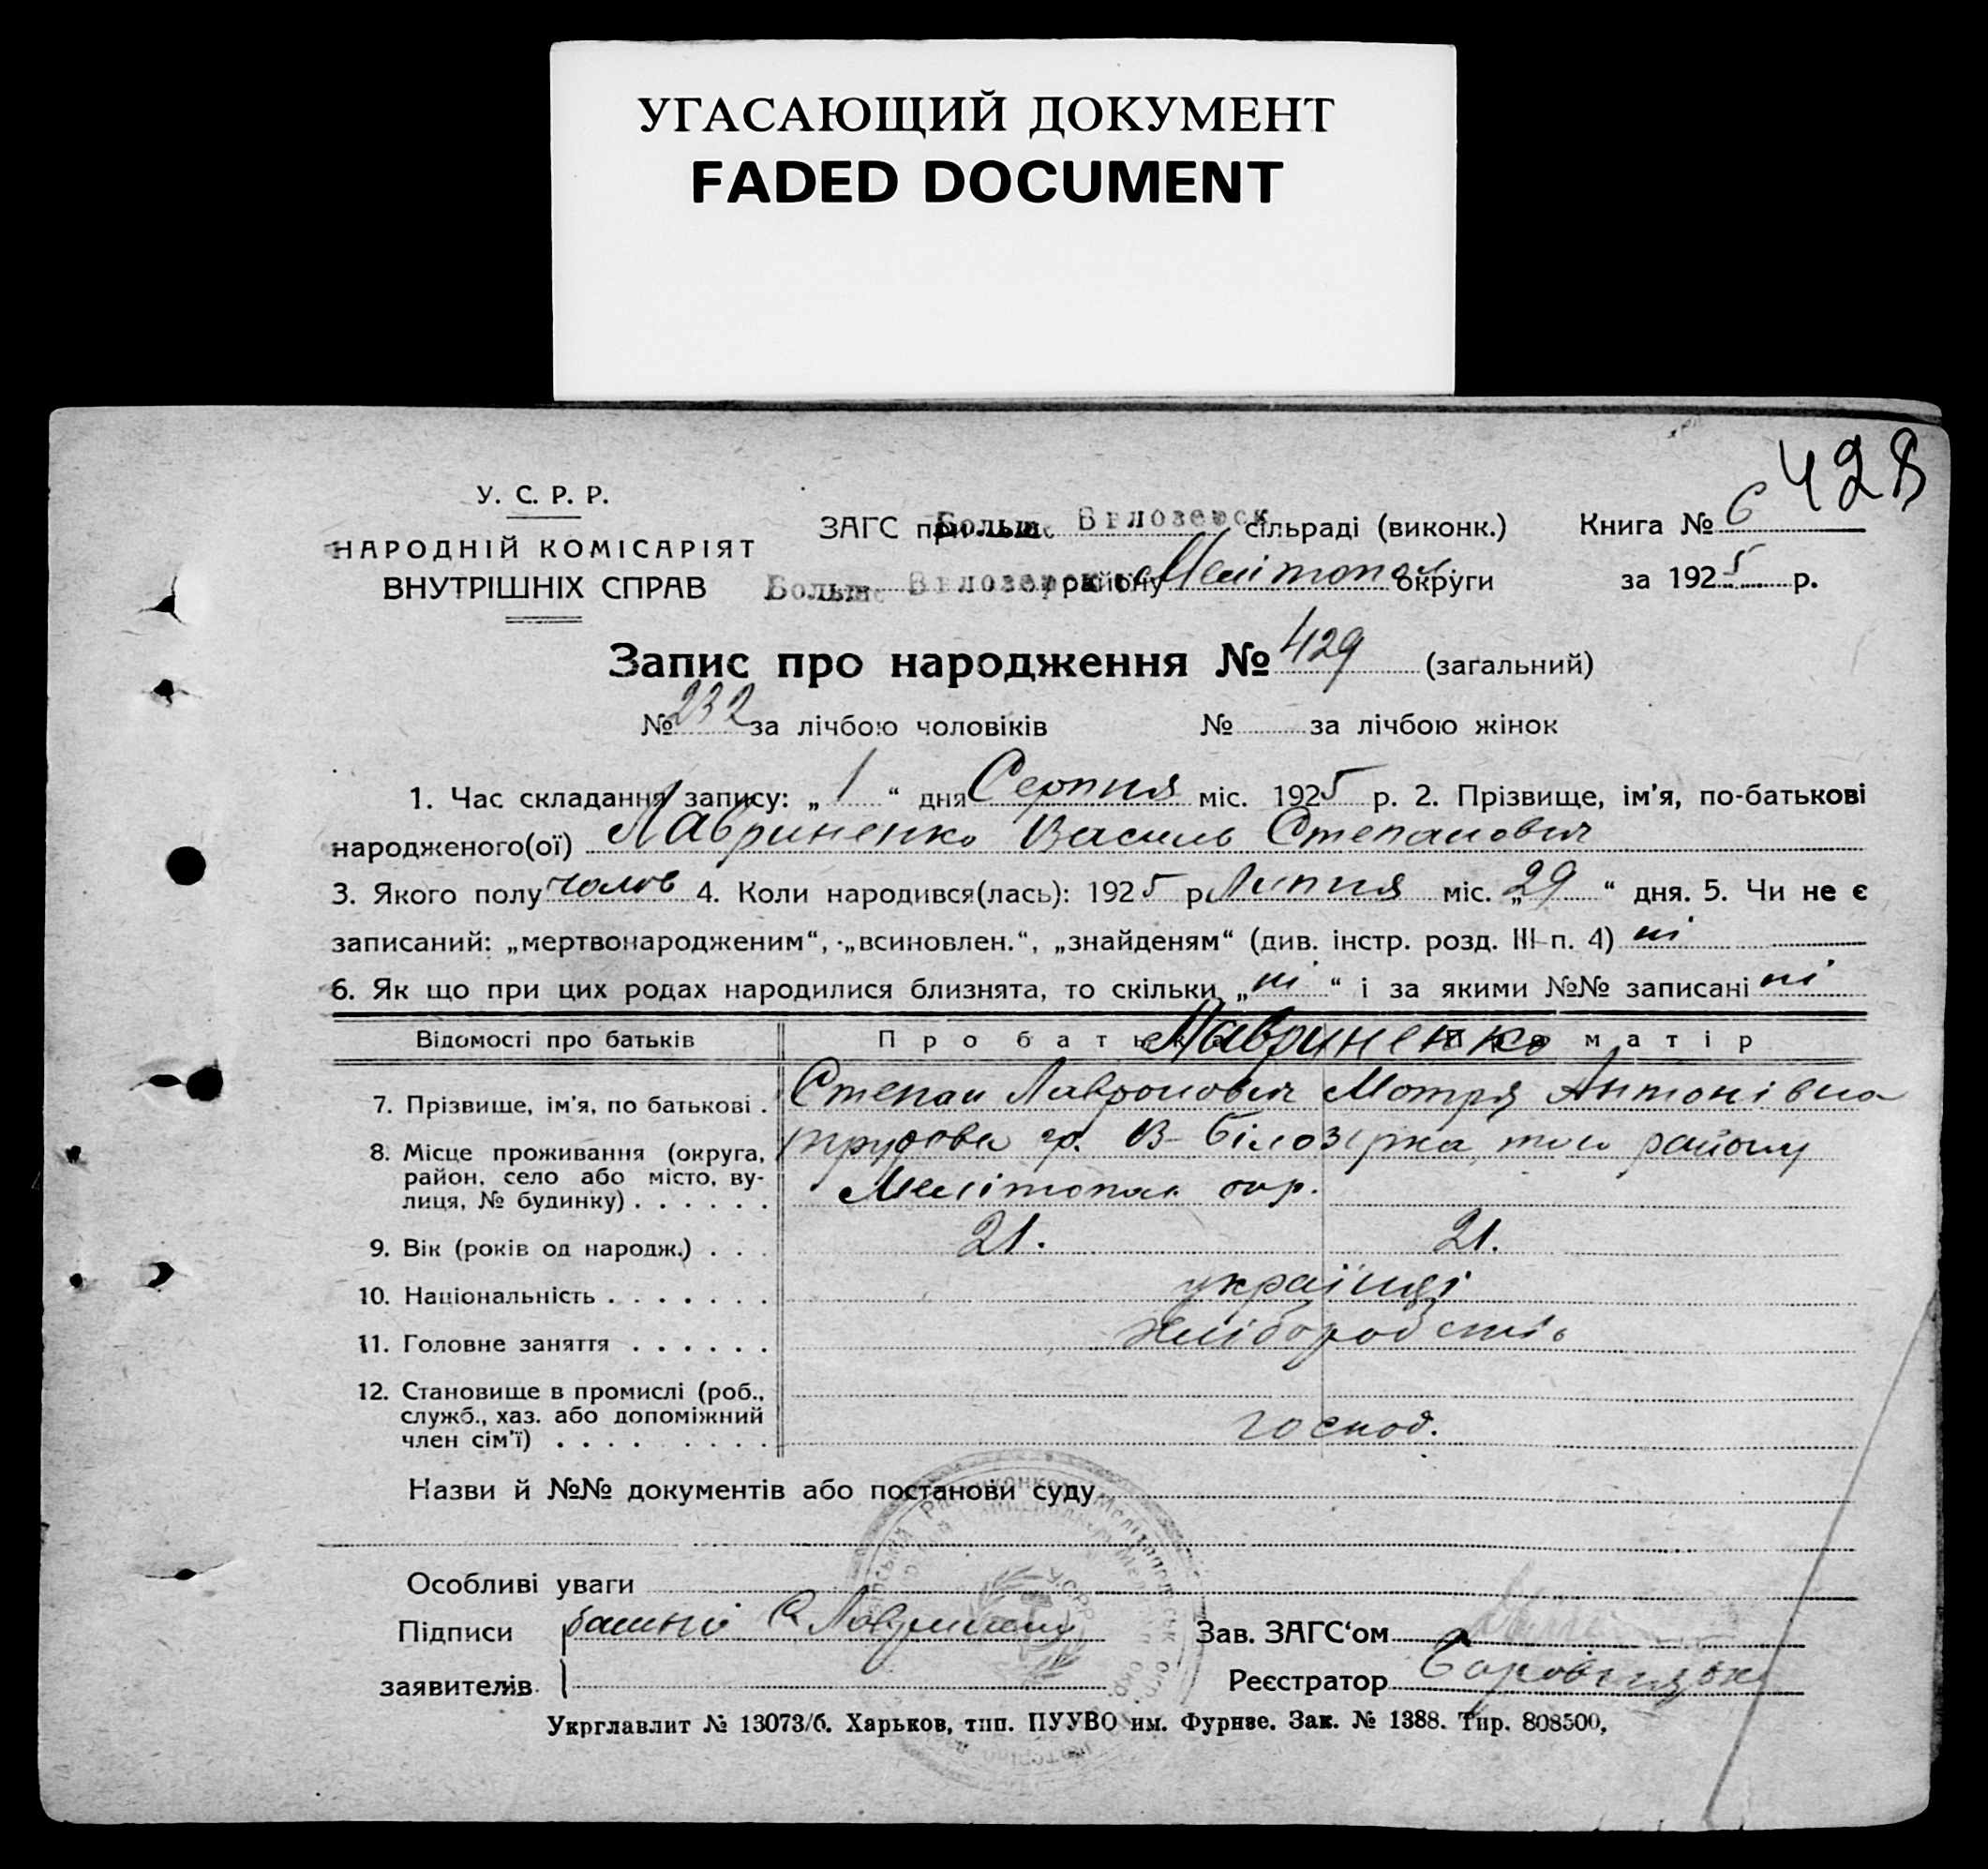 УГАСАЮЩИЙ ДОКУМЕНТ
FADED DOCUMENT
428
У. С. Р. Р.
НАРОДНІЙ КОМІСАРІЯТ
ВНУТРІШНІХ СПРАВ
ЗАГС при Больше Білозерск сільраді (виконк.)
Больше Білозерск району Мелітоп округи
Книга № 6
за 1925 р.
Запис про народження № 429 (загальний)
№ 232 за лічбою чоловіків № за лічбою жінок
1. Час складання запису: „ 1 “ дня Серпня міс. 1925 р. 2. Прізвище, ім’я, по-батькові
народженого(ої) Лавриненко Василь Степанович
3. Якого полу чолов 4. Коли народився(лась): 1925 р. Липня міс. „ 29 “ дня. 5. Чи не є
записаний: „мертвонародженим“, „всиновлен.“, „знайденям“ (див. інстр. розд. III п. 4) ні
6. Як що при цих родах народилися близнята, то скільки „ ні “ і за якими №№ записані ні
Відомості про батьків Про батька Про матір
Лавриненко
7. Прізвище, ім’я, по батькові . Степан Лавронович Мотря Антонівна
8. Місце проживання (округа, район, село або місто, вулиця, № будинку) . . . . . . трудова гр. В-Білозірка, того району
Мелітопол окр.
9. Вік (років од народж.) . . . 21. 21.
10. Національність . . . . . . . українці
11. Головне заняття . . . . . . хлібородств
12. Становище в промислі (роб., служб., хаз. або допоміжний член сім’ї) . . . . . . . . . господ.
Назви й №№ документів або постанови суду
Особливі уваги
Підписи заявителів батько С Лавриненко
Зав. ЗАГС‘ом
Реєстратор
Укрглавлит № 13073/б. Харьков, тип. ПУУВО им. Фрунзе. Зак. № 1388. Тир. 808500,